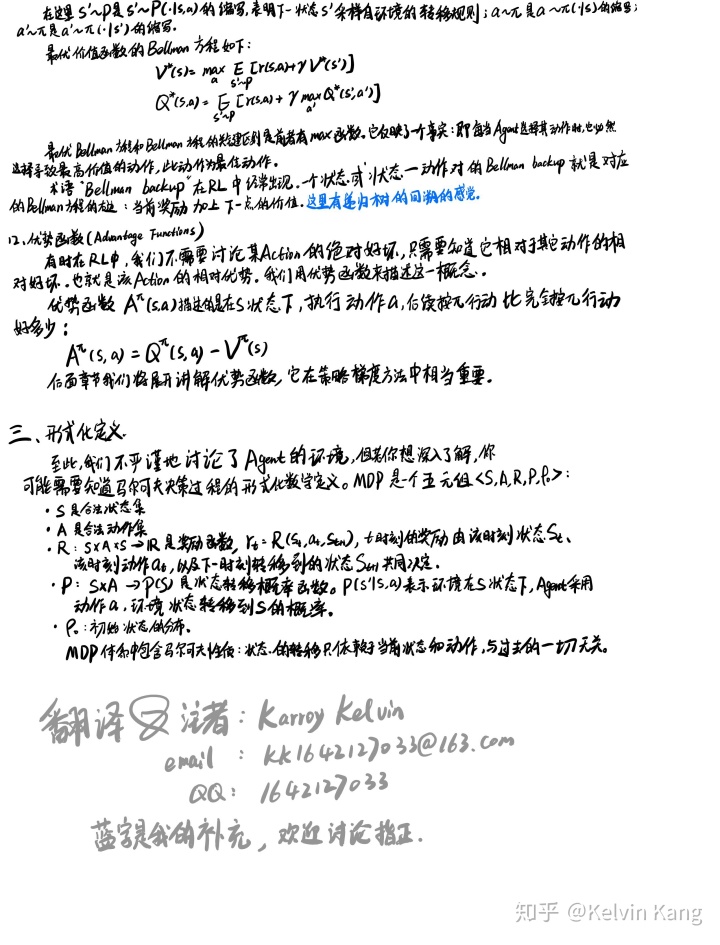 在这里 s'~P是 s'~P(·|s,a)的缩写,表明下一状态s'采样自环境的转移规则;a~π是a~π(·|s)的缩写;
a'~π是a'~π(·|s')的缩写.
最优价值函数的Bellman方程如下:
V*(s)= max_a E_{s'~P} [r(s,a)+γV*(s')]
Q*(s,a)= E_{s'~P} [r(s,a)+γ max_{a'} Q*(s',a')]
最优Bellman方程和Bellman方程的关键区别是前者有max函数。它反映了一个事实:即每当Agent选择其动作时,它必然
选择导致最高价值的动作,此动作为最佳动作。
术语"Bellman backup"在RL中经常出现。一个状态或状态-动作对的Bellman backup就是对应
的Bellman方程的右边:当前奖励加上下一点的价值.这里有递归树的回溯的感觉.
12.优势函数(Advantage Functions)
有时在RL中,我们不需要讨论某Action的绝对好坏,只需要知道它相对于其它动作的相
对好坏.也就是该Action的相对优势。我们用优势函数来描述这一概念.
优势函数 A^π(s,a)描述的是在s状态下,执行动作a,后续按π行动比完全按π行动
好多少:
A^π(s,a)=Q^π(s,a)-V^π(s)
后面章节我们将展开讲解优势函数,它在策略梯度方法中相当重要。
三、形式化定义.
至此,我们不严谨地讨论了Agent的环境,但若你想深入了解,你
可能需要知道马尔可夫决策过程的形式化数学定义。MDP是一个五元组<S,A,R,P,ρ₀>:
·S是合法状态集
·A是合法动作集
·R:S×A×S→ℝ是奖励函数,rₜ=R(sₜ,aₜ,sₜ₊₁),t时刻的奖励由该时刻状态Sₜ、
该时刻动作aₜ,以及下一时刻转移到的状态Sₜ₊₁共同决定.
·P:S×A→P(S)是状态转移概率函数。P(s'|s,a)表示环境在s状态下,Agent采用
动作a,环境状态转移到S的概率。
·ρ₀:初始状态的分布.
MDP体系中包含马尔可夫性质:状态的转移只依赖于当前状态和动作,与过去的一切无关。
翻译及注者:Karroy Kelvin
email:kk1642127033@163.com
QQ:1642127033
蓝字是我的补充,欢迎讨论指正.
知乎 @Kelvin Kang